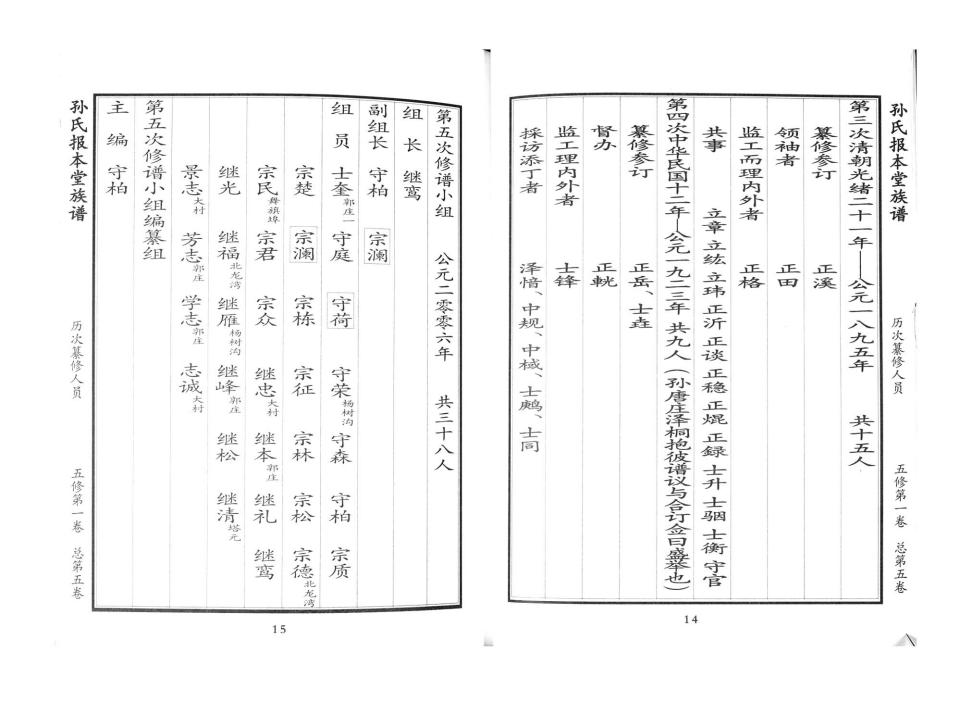 孙氏报本堂族谱 历次纂修人员 五修第一卷 总第五卷
第三次清朝光绪二十一年——公元一八九五年 共十五人
纂修参订 正溪
领袖者 正田
监工而理内外者 正格
共事 立章 立纮 立玮 正沂 正谈 正稳 正焜 正録 士升 士驷 士衡 守官
第四次中华民国十二年—公元一九二三年 共九人（孙唐庄泽桐抱彼谱议与合订佥曰盛举也）
纂修参订 正岳、士垚
督办 正觥
监工理内外者 士锋
采访添丁者 泽愔、中规、中棫、士鹧、士同
14
第五次修谱小组 公元二零零六年 共三十八人
组长 继鸾
副组长 守柏 宗澜
组员 士奎郭庄一 守庭 守荷 守荣杨树沟 守森 守柏 宗质
宗楚 宗澜 宗栋 宗征 宗林 宗松 宗德北龙湾
宗民舞旗埠 宗君 宗众 继忠大村 继本郭庄 继礼 继鸾
继光 继福北龙湾 继雁杨树沟 继峰郭庄 继松 继清塔元
景志大村 芳志郭庄 学志郭庄 志诚大村
第五次修谱小组编纂组
主编 守柏
孙氏报本堂族谱 历次纂修人员 五修第一卷 总第五卷
15